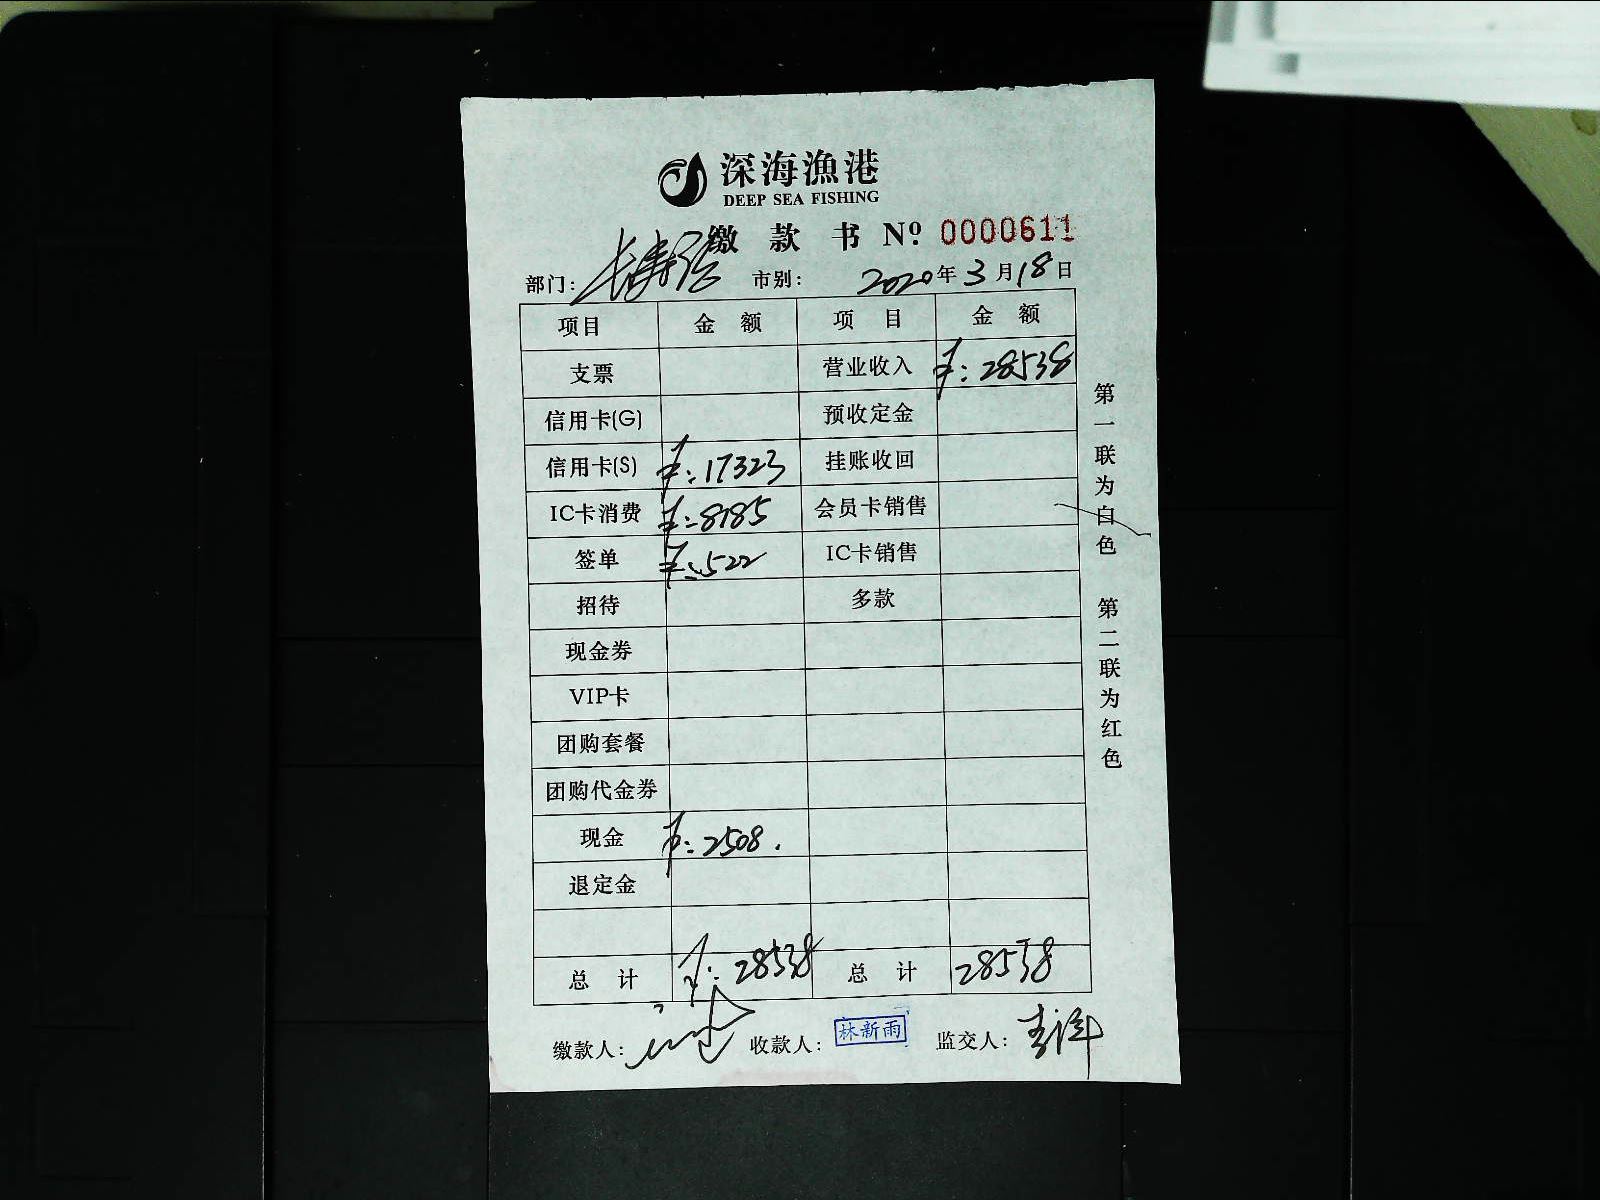 深海漁港
DEEP SEA FISHING
缴款书 Nº 0000611
部门: 长寿路 市别: 2020年3月18日
项目 金额 项目 金额
支票 营业收入 ¥:28538
信用卡(G) 预收定金
信用卡(S) ¥:17323 挂账收回
IC卡消费 ¥:8185 会员卡销售
签单 ¥:522 IC卡销售
招待 多款
现金券
VIP卡
团购套餐
团购代金券
现金 ¥:2508.
退定金
总计 ¥:28538 总计 28538
缴款人: 收款人: 林新雨 监交人:
第一联为白色 第二联为红色